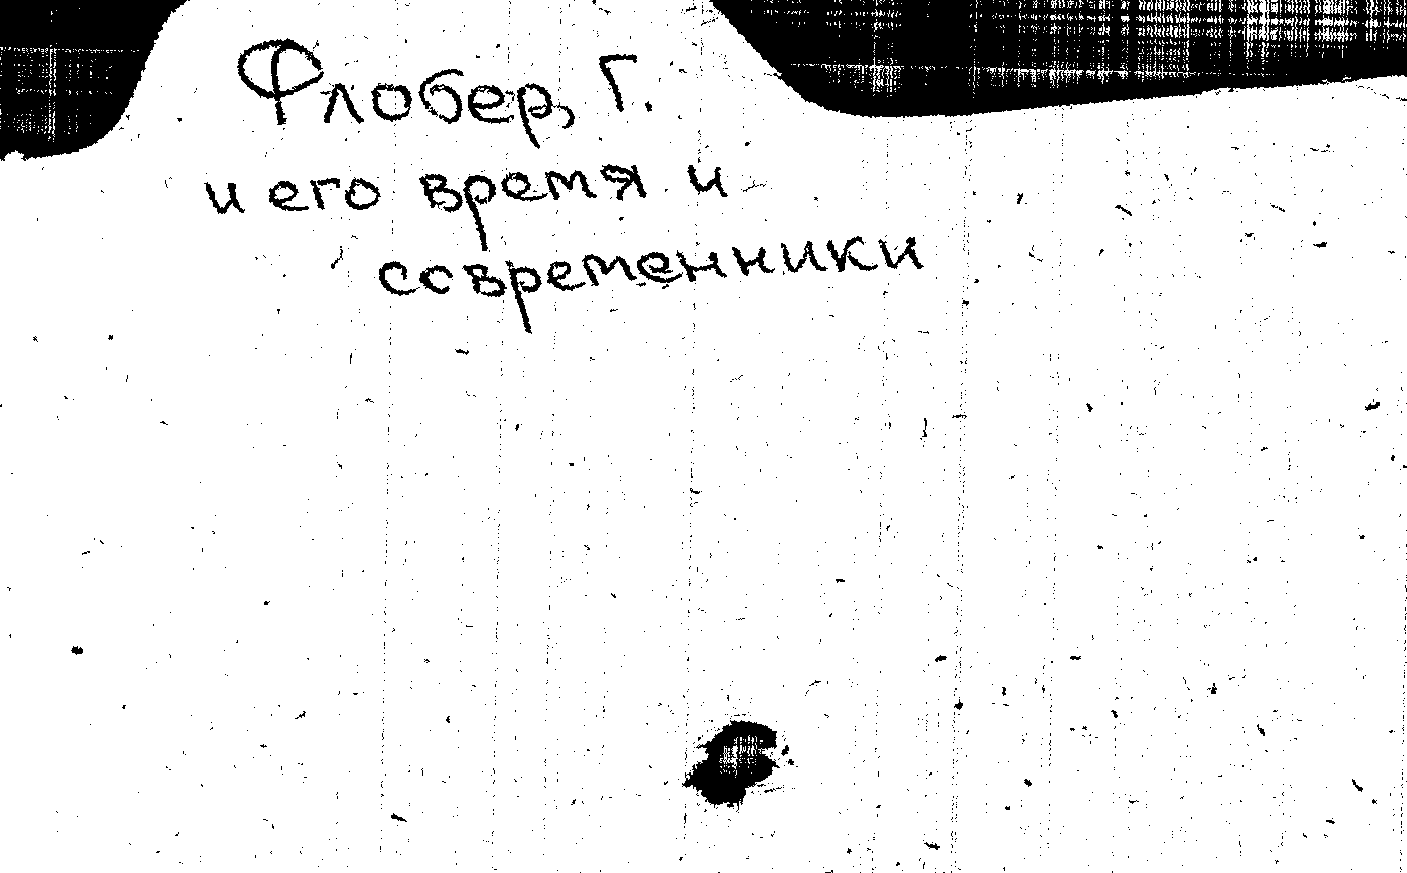 Флобер, Г.
и его время и
современники